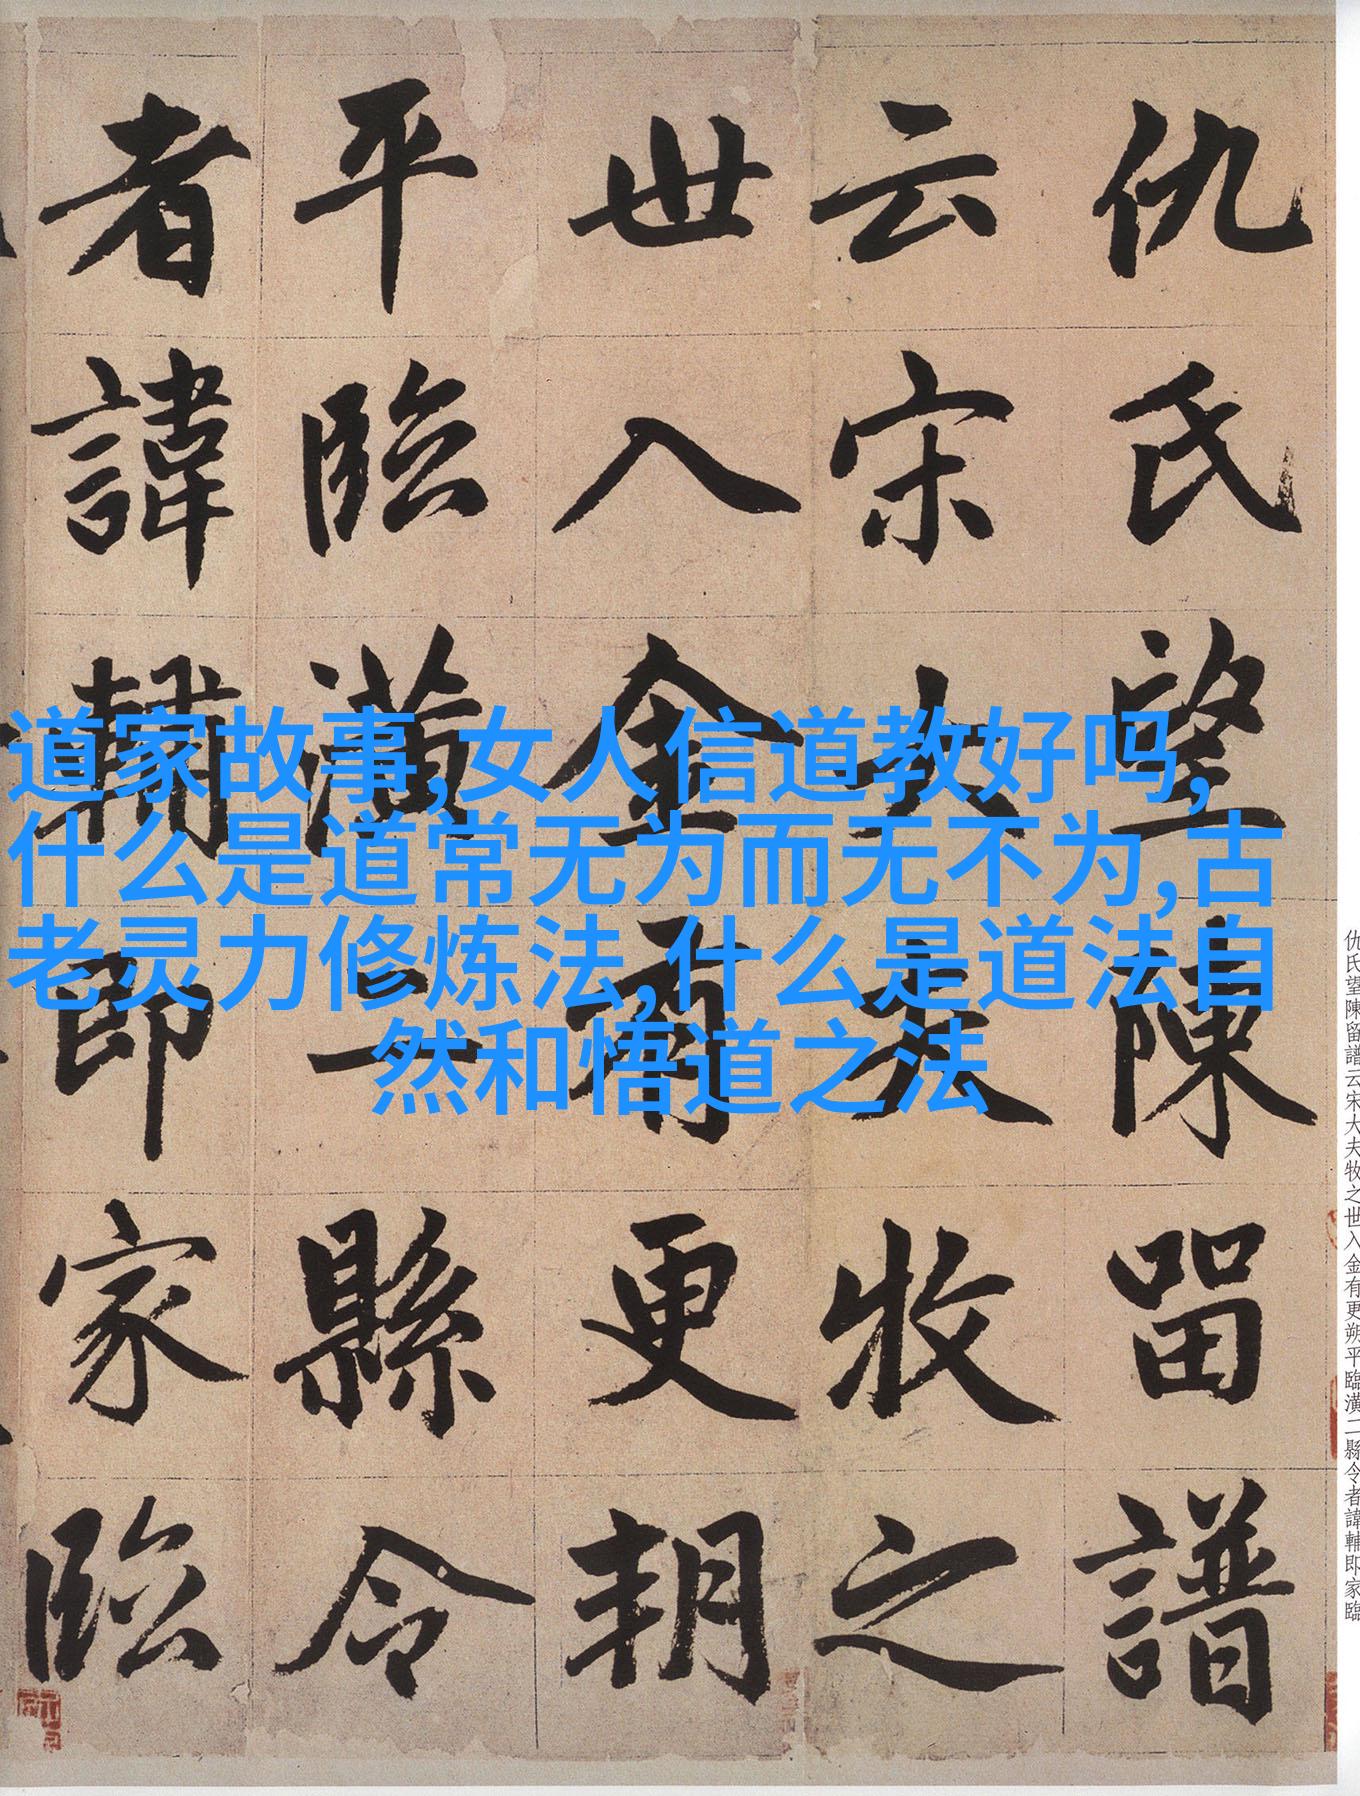 仇氏望陳留譜
云宋大夫牧之
世入金有更朔
平臨潢二縣令
者諱輔即家臨
道家故事,女人信道教好吗,
什么是道常无为而无不为,古
老灵力修炼法,什么是道法自
然和悟道之法
仇氏望陳留譜云宋大夫牧之世入金有更朔平臨潢二縣令者諱輔即家臨